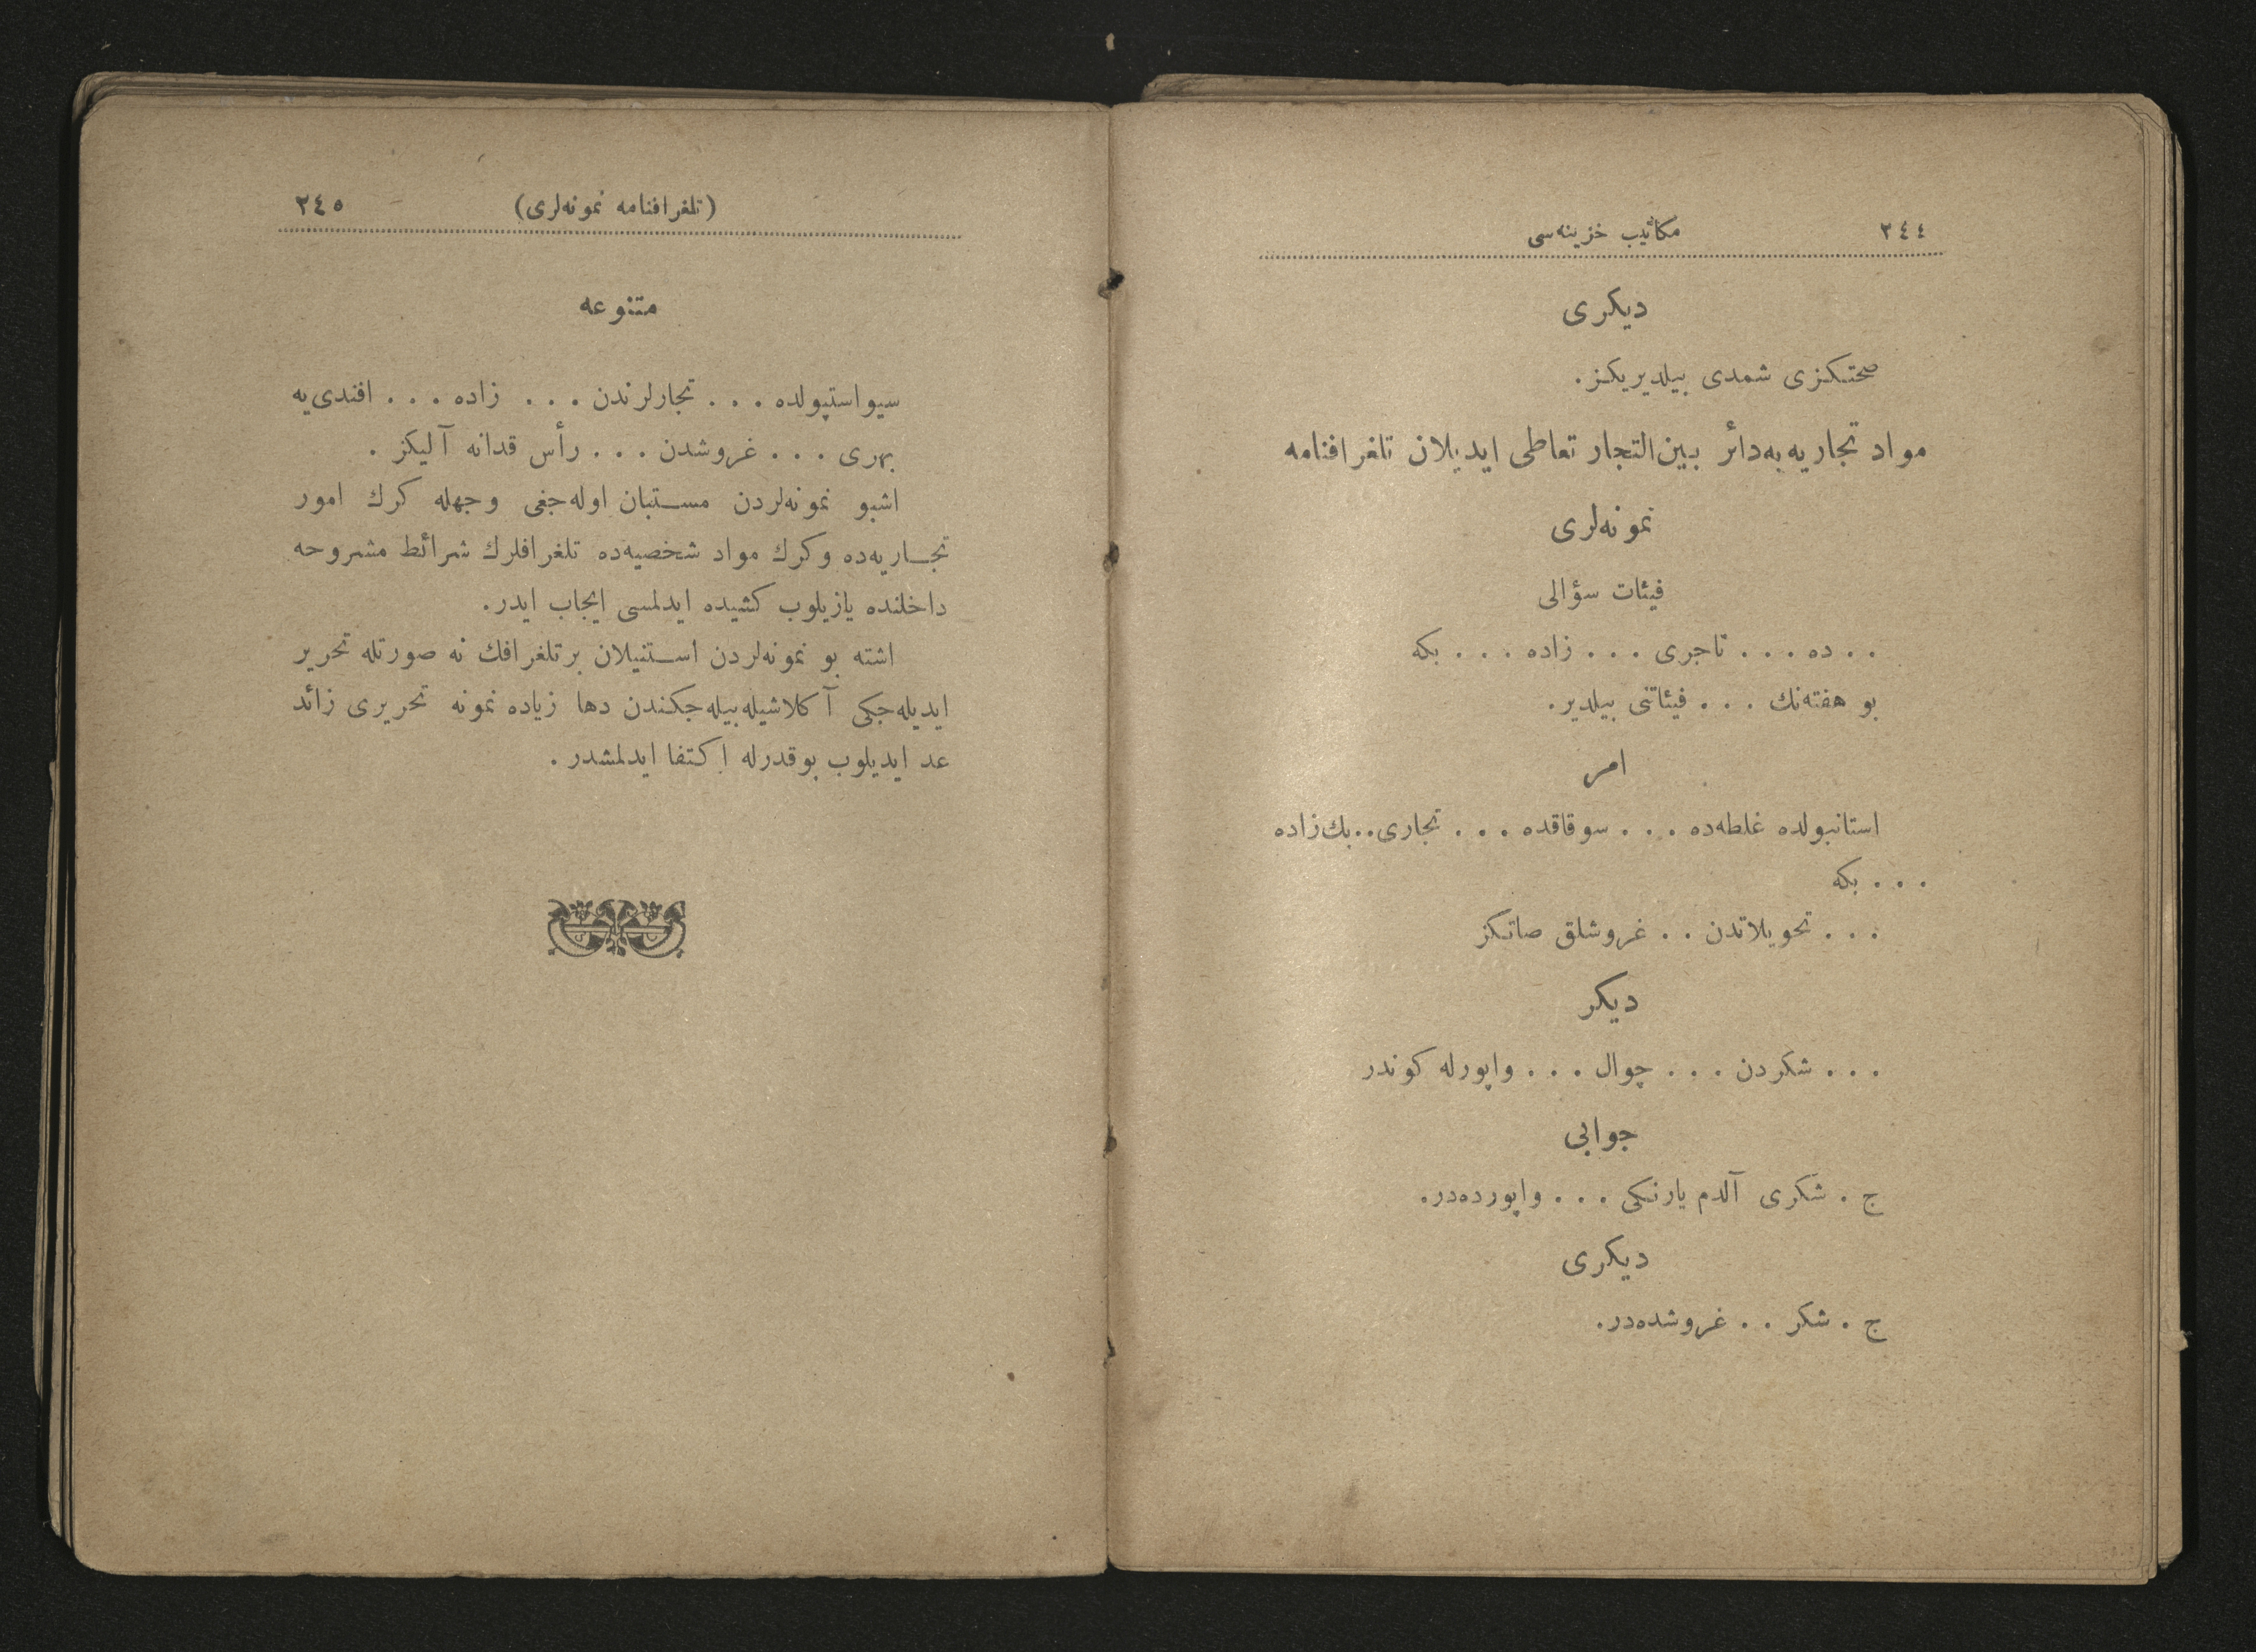 ٣٤٤ مكاتيب خزينه‌سى
ديكرى
صحتكزى شمدى بيلديريكز.
مواد تجاريه‌به‌دائر بين‌التجار تعاطى ايديلان تلغرافنامه
نمونه‌لرى
فيئات سؤالى
. . ده . . . تاجرى . . . زاده . . . بكه
بو هفته‌نك . . . فيئاتنى بيلدير.
امر
استانبولده غلطه‌ده . . . سوقاقده . . . تجارى . . بك‌زاده
. . . بكه
. . . تحويلاتدن . . غروشلق صاتكز
ديكر
. . . شكردن . . . چوال . . . واپورله كوندر
جوابى
ج . شكرى آلدم يارنكى . . . واپورده‌در.
ديكرى
ج . شكر . . غروشده‌در.
(تلغرافنامه نمونه‌لرى) ٣٤٥
متنوعه
سيواستپولده . . . تجارلرندن . . . زاده . . . افندى‌يه
بهرى . . . غروشدن . . . رأس قدانه آليكز .
اشبو نمونه‌لردن مستبان اوله‌جغى وجهله كرك امور
تجاريه‌ده وكرك مواد شخصيه‌ده تلغرافلرك شرائط مشروحه
داخلنده يازيلوب كشيده ايدلمسى ايجاب ايدر.
اشته بو نمونه‌لردن استنيلان برتلغرافك نه صورتله تحرير
ايديله‌جكى آكلاشيله‌بيله‌جكندن دها زياده نمونه تحريرى زائد
عد ايديلوب بوقدرله اكتفا ايدلمشدر .